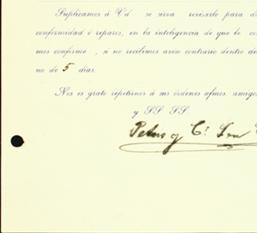 Suplicamos á Vd se sirva revisarlo para da
conformidad ó reparos, en la inteligencia de que lo co
mos conforme, si no recibimos aviso contrario dentro de
no de 5 días.
Nos es grato repetirnos á sus órdenes afmos. amigo
y SS SS
y Cª